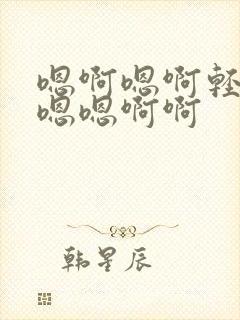 嗯啊嗯啊轻
嗯嗯啊啊
韩星辰